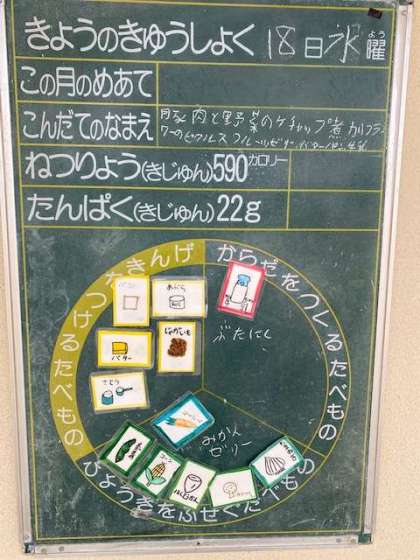 きょうのきゅうしょく 18日水曜
よう
この月のめあて
こんだてのなまえ 豚肉と野菜のケチャップ煮 カリフラ
ワーのピクルス フルーツゼリー バターパン 牛乳
ねつりょう(きじゅん)590カロリー
たんぱく(きじゅん)22g
げんきをつけるたべもの
からだをつくるたべもの
あぶら
バター
じゃがいも
さとう
ぶたにく
みかん
ゼリー
コーン
びょうきをふせぐたべもの